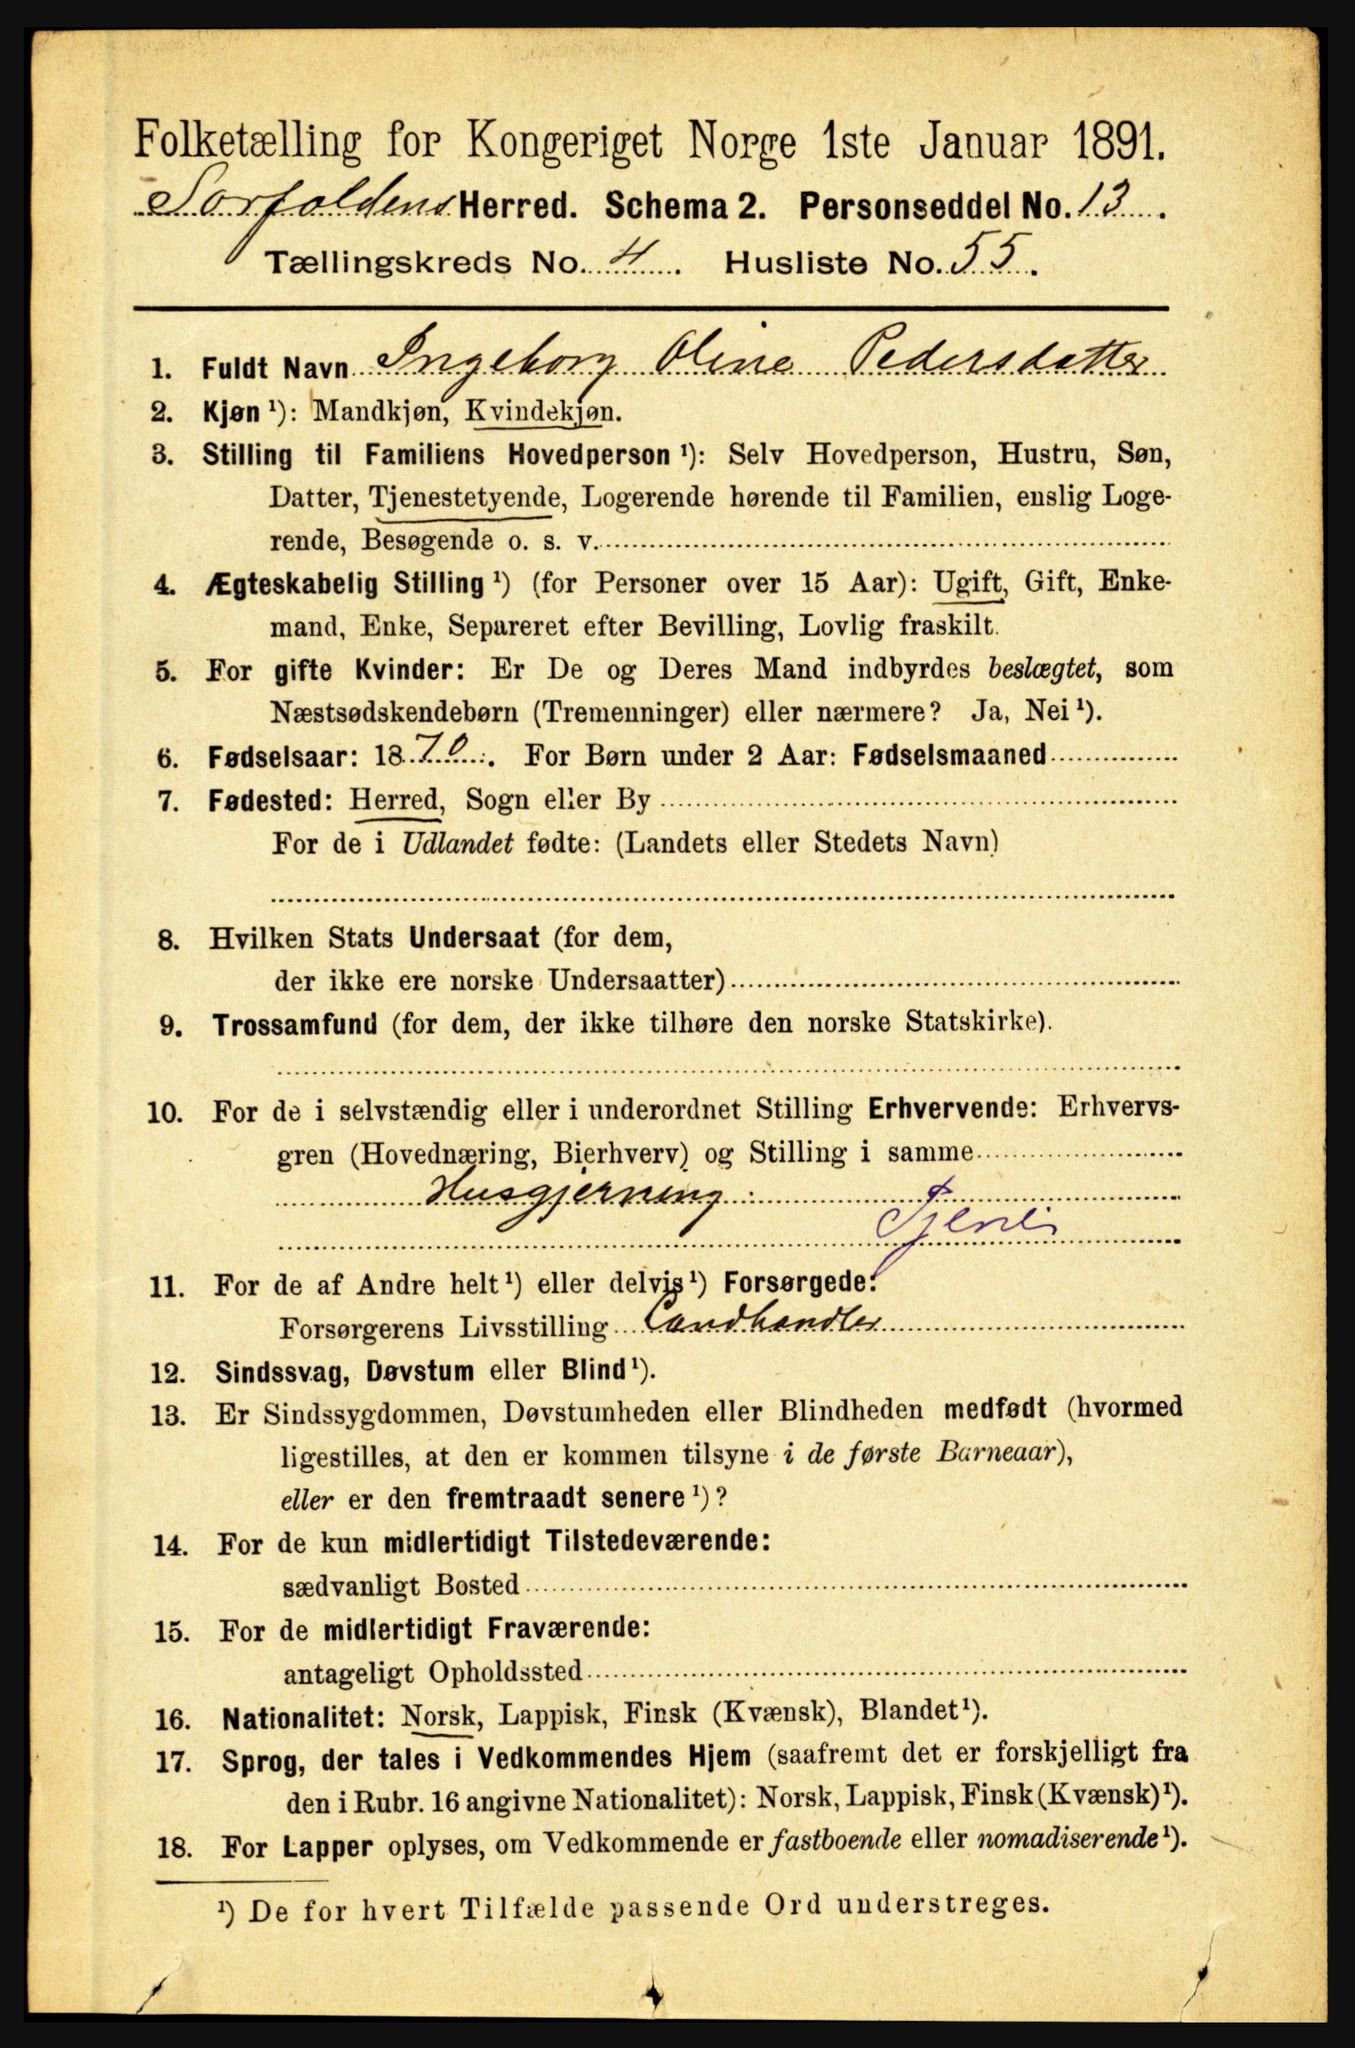 Folketælling for Kongeriget Norge 1ste Januar 1891.
Sørfoldens Herred. Schema 2. Personseddel No. 13.
Tællingskreds No. 4. Husliste No. 55.
1. Fuldt Navn Ingeborg Oline Pedersdatter
2. Kjøn ¹): Mandkjøn, Kvindekjøn.
3. Stilling til Familiens Hovedperson ¹): Selv Hovedperson, Hustru, Søn,
Datter, Tjenestetyende, Logerende hørende til Familien, enslig Loge-
rende, Besøgende o. s. v.
4. Ægteskabelig Stilling ¹) (for Personer over 15 Aar): Ugift, Gift, Enke-
mand, Enke, Separeret efter Bevilling, Lovlig fraskilt.
5. For gifte Kvinder: Er De og Deres Mand indbyrdes beslægtet, som
Næstsødskendebørn (Tremenninger) eller nærmere? Ja, Nei ¹).
6. Fødselsaar: 1870. For Børn under 2 Aar: Fødselsmaaned
7. Fødested: Herred, Sogn eller By
For de i Udlandet fødte: (Landets eller Stedets Navn)
8. Hvilken Stats Undersaat (for dem,
der ikke ere norske Undersaatter)
9. Trossamfund (for dem, der ikke tilhøre den norske Statskirke).
10. For de i selvstændig eller i underordnet Stilling Erhvervende: Erhvervs-
gren (Hovednæring, Bierhverv) og Stilling i samme
Husgjerning.
11. For de af Andre helt ¹) eller delvis ¹) Forsørgede:
Forsørgerens Livsstilling Landhandler
12. Sindssvag, Døvstum eller Blind ¹).
13. Er Sindssygdommen, Døvstumheden eller Blindheden medfødt (hvormed
ligestilles, at den er kommen tilsyne i de første Barneaar),
eller er den fremtraadt senere ¹)?
14. For de kun midlertidigt Tilstedeværende:
sædvanligt Bosted
15. For de midlertidigt Fraværende:
antageligt Opholdssted
16. Nationalitet: Norsk, Lappisk, Finsk (Kvænsk), Blandet ¹).
17. Sprog, der tales i Vedkommendes Hjem (saafremt det er forskjelligt fra
den i Rubr. 16 angivne Nationalitet): Norsk, Lappisk, Finsk (Kvænsk) ¹).
18. For Lapper oplyses, om Vedkommende er fastboende eller nomadiserende ¹).
¹) De for hvert Tilfælde passende Ord understreges.